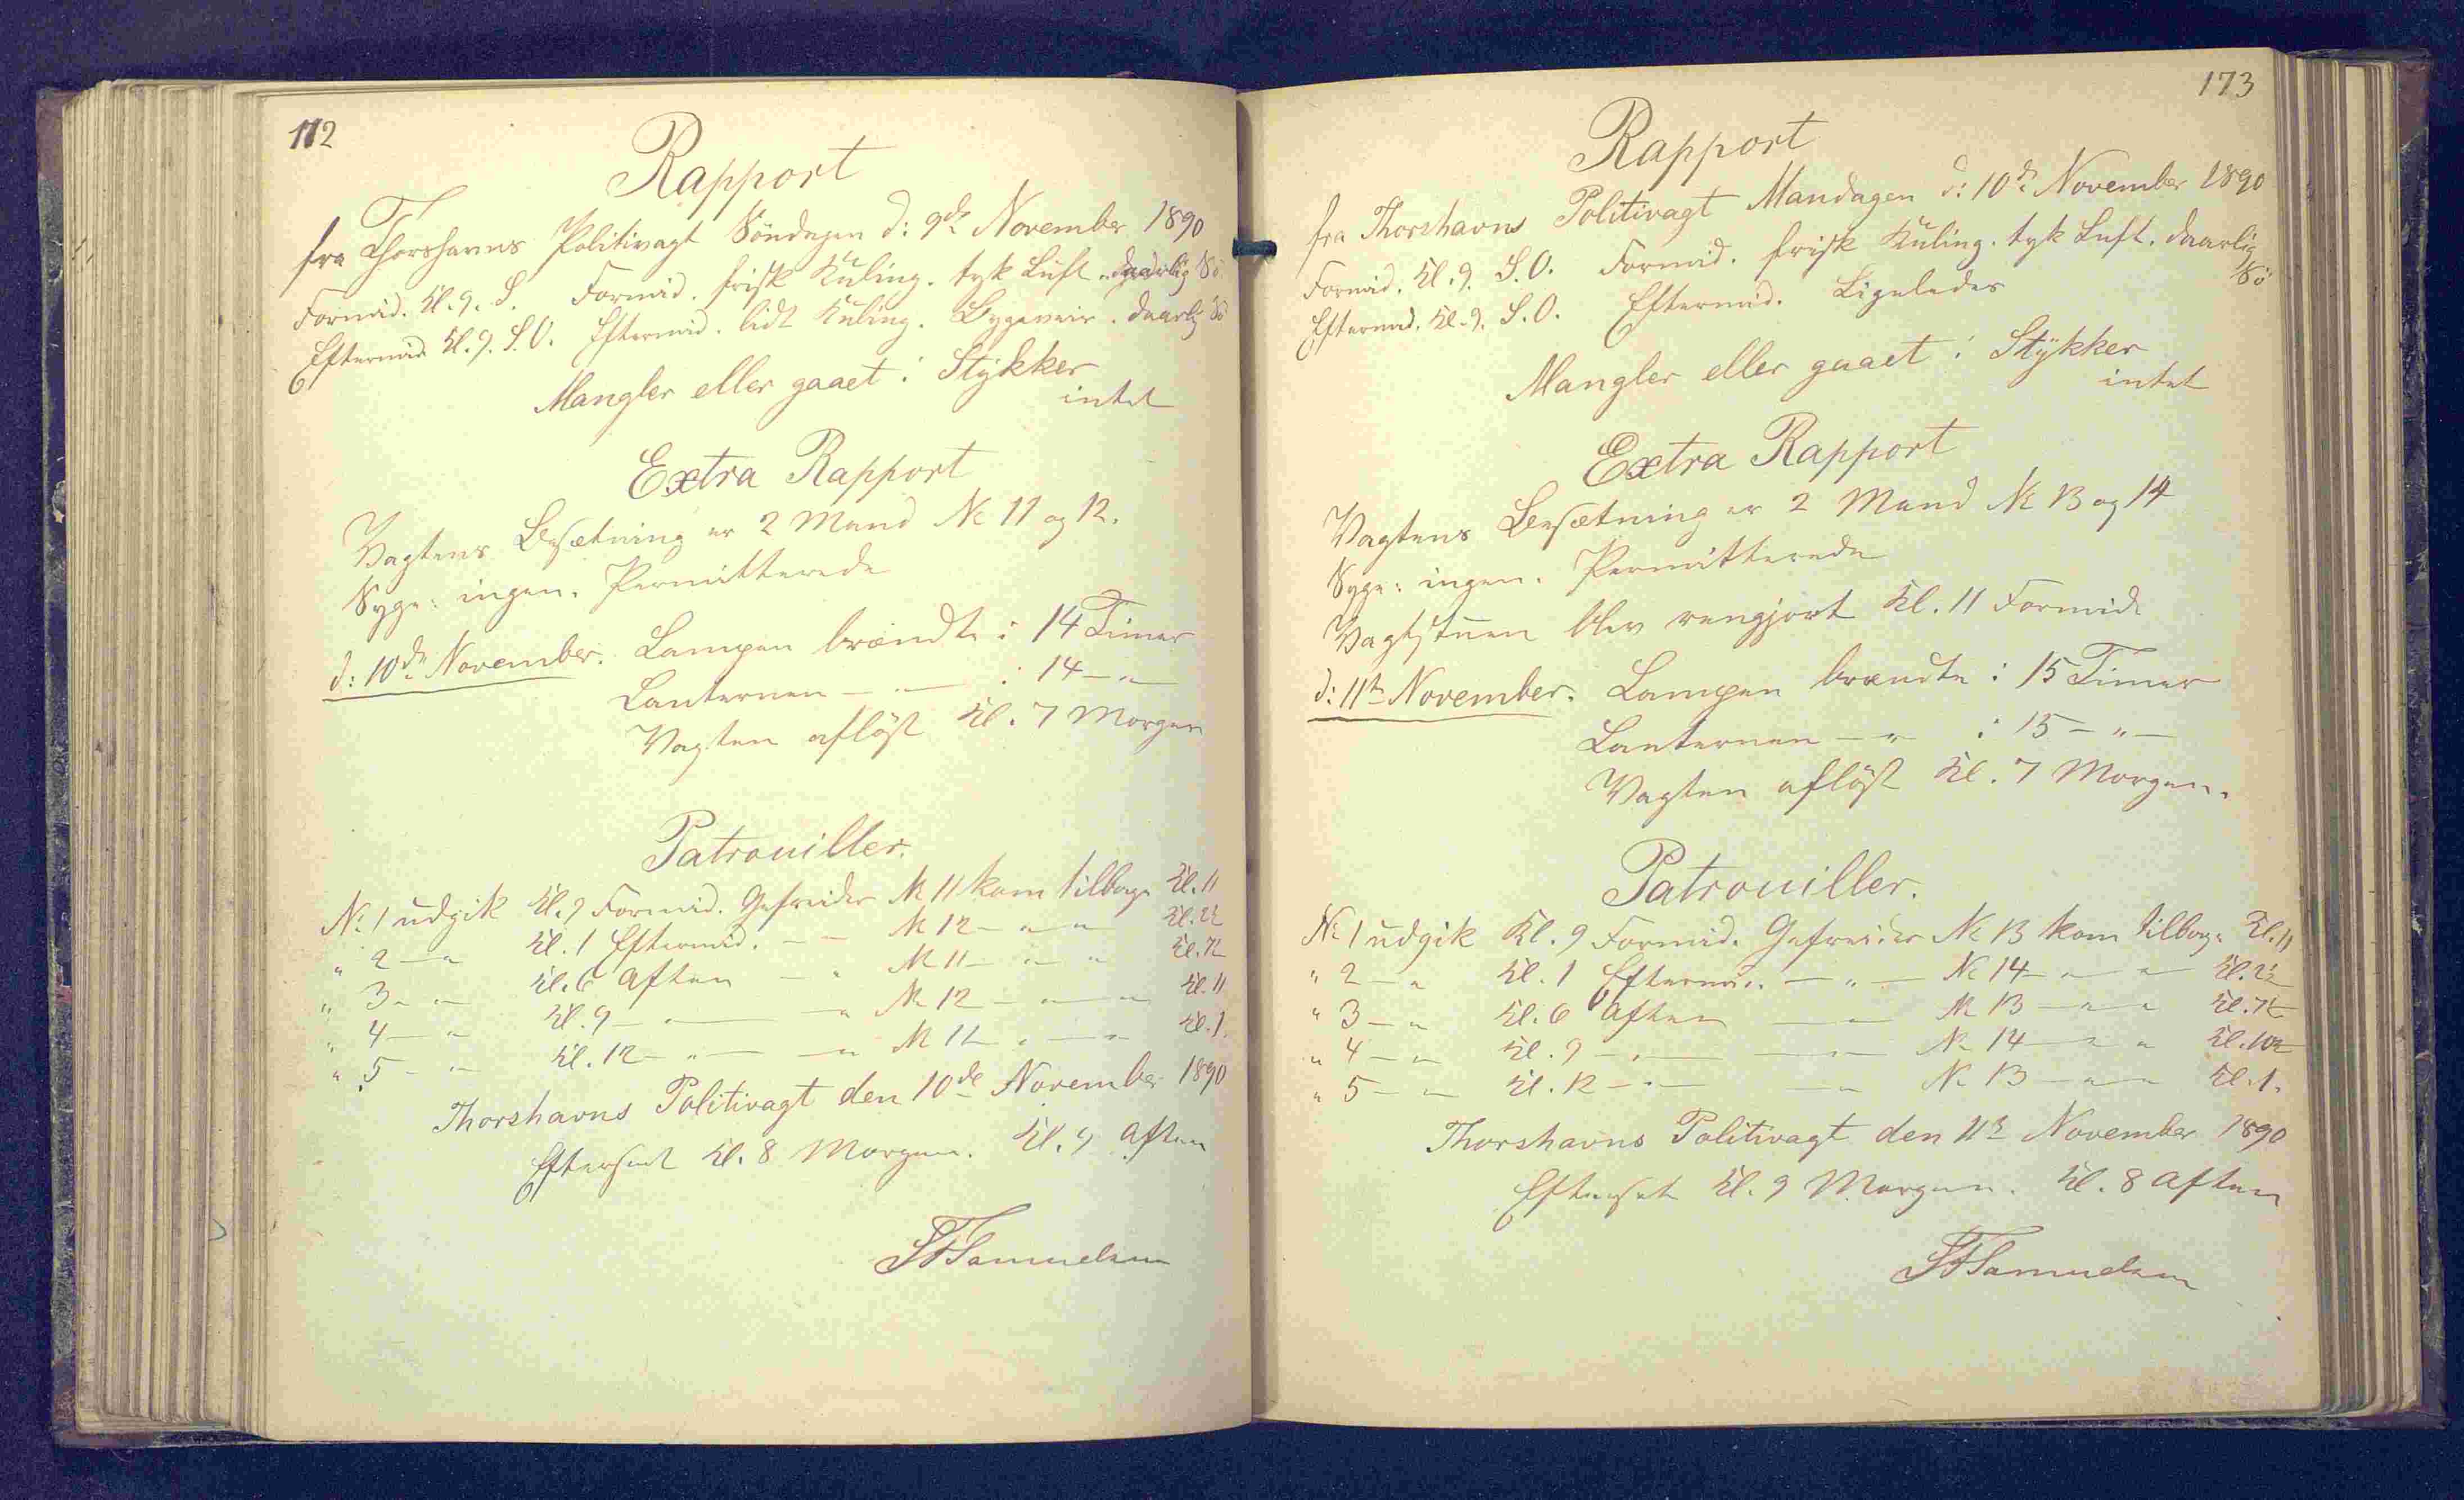 172
Rapport
fra Thorshavns Politivagt Söndagen d: 9de November 1890
Formid. Kl. 9. S. Formid. frisk Kuling. tyk Luft. daarlig Sö
Eftermid. Kl. 9. S.O. Eftermid. lidt Kuling. Bygeveir. daarlig Sö
Mangler eller gaaet i Stykker
intet
Extra Rapport
Vagtens Besætning er 2 Mand No 11 og 12.
Syge: ingen. Permitterede
d: 10de November. Lampen brændte i 14 Timer
Lanternen — " — i 14 — " —
Vagten aflöst Kl. 7 Morgen
Patrouiller.
No 1 udgik Kl. 9 Formid. Gefreider No 11 kom tilbage Kl. 11
" 2 — " Kl. 1 Eftermid. — — No 12 — " — " Kl. 2½
" 3 — " — Kl. 6 Aften — " No 11 — " — " Kl. 7½
" 4 — " Kl. 9 — " — — " No 12 — " — " Kl. 11
" 5 — " — Kl. 12 — " — — " No 11 — " — " Kl. 1.
Thorshavns Politivagt den 10de November 1890
Efterset Kl. 8 Morgen. Kl. 9 Aften
Samuelsen
173
Rapport
fra Thorshavns Politivagt Mandagen d: 10de November 1890
Formid. Kl. 9. S.O. Formid. frisk Kuling. tyk Luft. daarlig
Sö
Eftermid. Kl. 9. S.O. Eftermid. Ligeledes
Mangler eller gaaet i Stykker
intet
Extra Rapport
Vagtens Besætning er 2 Mand No 13 og 14
Syge: ingen. Permitterede
Vagtstuen blev rengjort Kl. 11 Formid.
d: 11te November. Lampen brændte i 15 Timer
Lanternen — " — i 15 — " —
Vagten aflöst Kl. 7 Morgen.
Patrouiller.
No 1 udgik Kl. 9 Formid. Gefreider No 13 kom tilbage Kl. 11
" 2 — " Kl. 1 Eftermid. — " — No 14 — " — " Kl. 2½
" 3 — " Kl. 6 Aften — " — No 13 — " — " Kl. 7½
" 4 — " Kl. 9 — " — — " — No 14 — " — " Kl. 10½
" 5 — " Kl. 12 — " — — " No 13 — " — " Kl. 1.
Thorshavns Politivagt den 11te November 1890
Efterset Kl. 9 Morgen. Kl. 8 Aften
Samuelsen